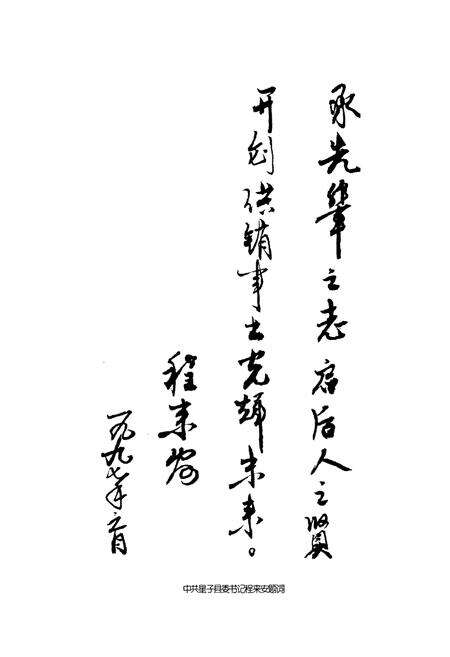 承先辈之志启后人之贤
开创供销事业光辉未来。
程来安
一九九七年二月
中共星子县委书记程来安题词